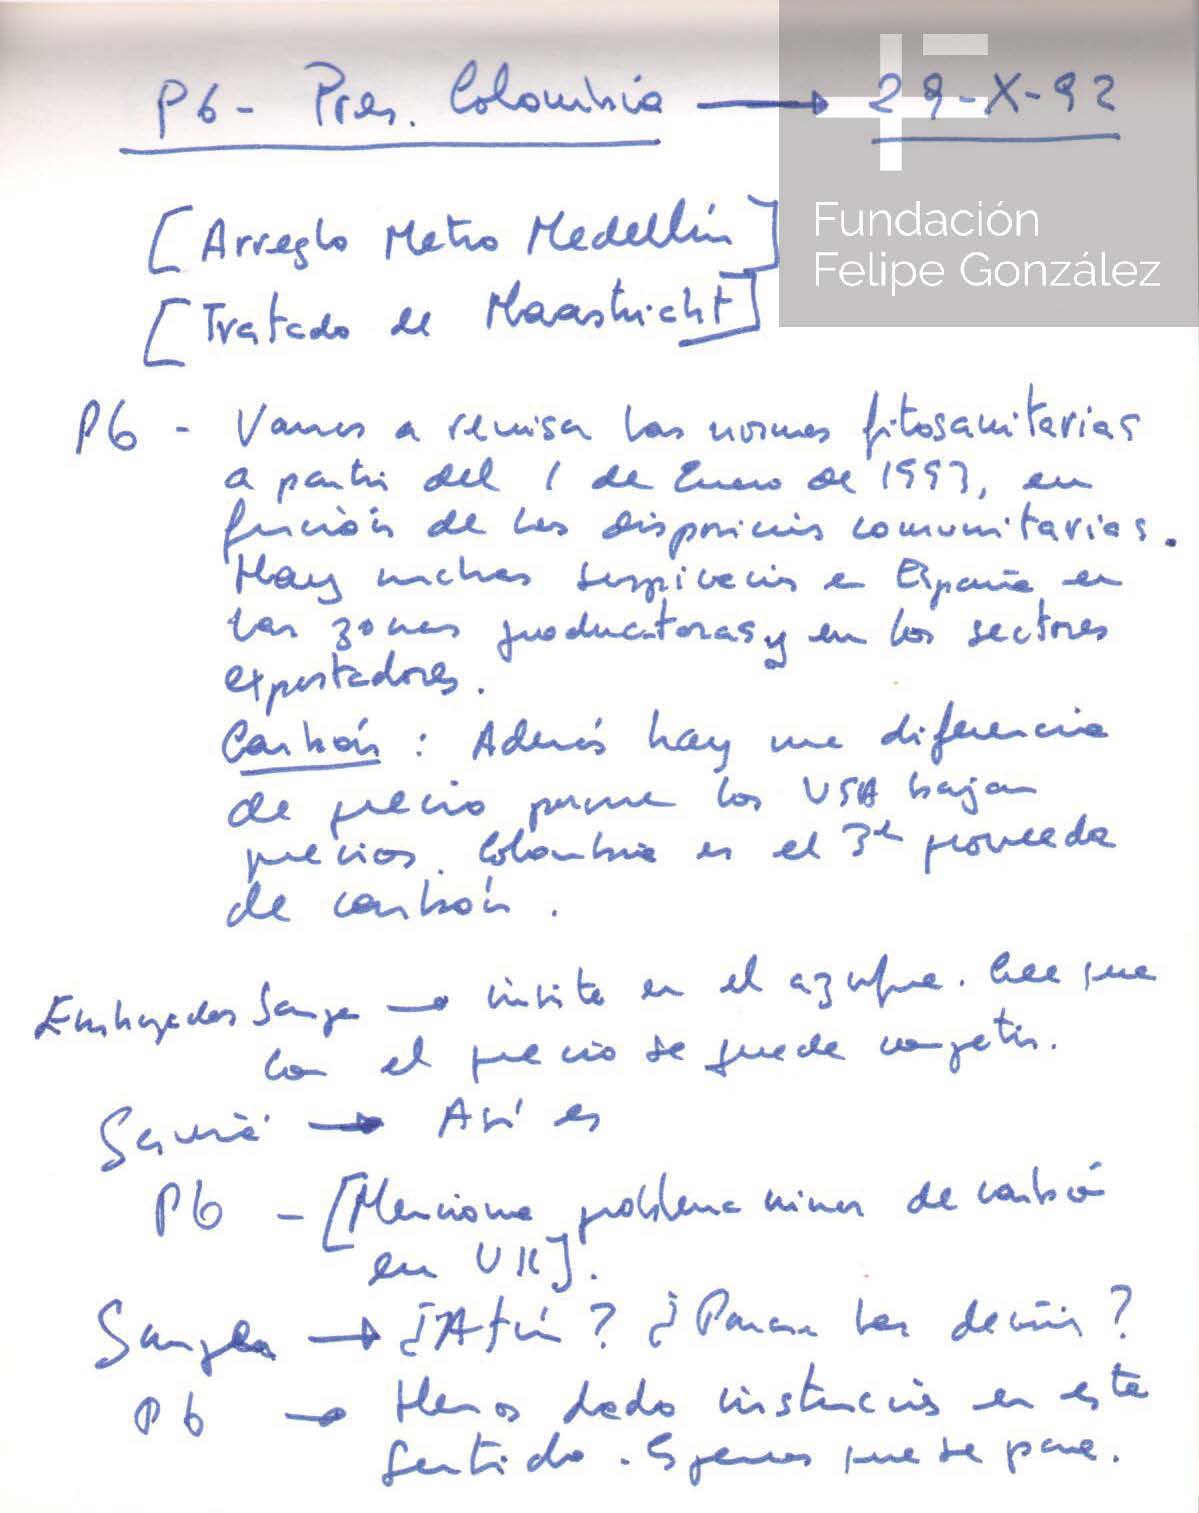 PG - Pres. Colombia → 29-X-92
Fundación
Felipe González
[Arreglo Metro Medellín]
[Tratado de Maastricht]
PG - Vamos a revisar las normas fitosanitarias
a partir del 1 de Enero de 1993, en
función de las disposiciones comunitarias.
Hay muchas suspicacias en España en
las zonas productoras y en los sectores
exportadores.
Carbón : Además hay una diferencia
de precio porque los USA bajan
precios. Colombia es el 3er proveedor
de carbón.
Embajador Samper → insiste en el azufre. Cree que
con el precio se puede competir.
→ Así es
PG - [Menciona problema minas de carbón
en UK].
Samper → ¿Atún? ¿Pararan las decisiones?
PG → Hemos dado instrucciones en este
sentido. Esperemos que se pare.